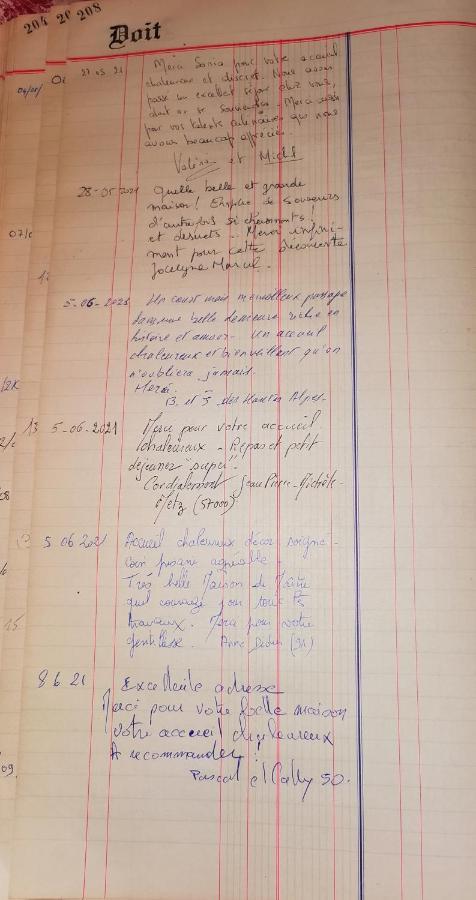 204 20 208
Doit
27 05 21 Merci Sonia pour votre accueil
chaleureux et discret. Nous avons
passé un excellent séjour chez vous,
dont on se souviendra. Merci aussi
pour vos talents culinaires que nous
avons beaucoup appréciés.
Valérie et Michel
28-05-2021 Quelle belle et grande
maison! Emplie de souvenirs
d'autrefois si charmants!
et desuets... Merci infini-
ment pour cette découverte
Jocelyne Marcel.
5-06-2021 Un court mais merveilleux passage
dans une belle demeure riche en
histoire et amour. Un accueil
chaleureux et bienveillant qu'on
n'oubliera jamais.
Merci.
B et J des Hautes Alpes.
5-06-2021 Merci pour votre accueil
chaleureux - Repas et petit
déjeuner "super".
Cordialement Jean Pierre - Michèle -
Metz (57000)
5 06 2021 Accueil chaleureux décor soigné -
coin piscine agréable -
Très belle Maison de Maître
quel courage pour tous ces
travaux. Merci pour votre
gentillesse. Anne Didier (91)
8 6 21 Excellente adresse
Merci pour votre belle maison
votre accueil chaleureux
A recommander!
Pascal et 50.